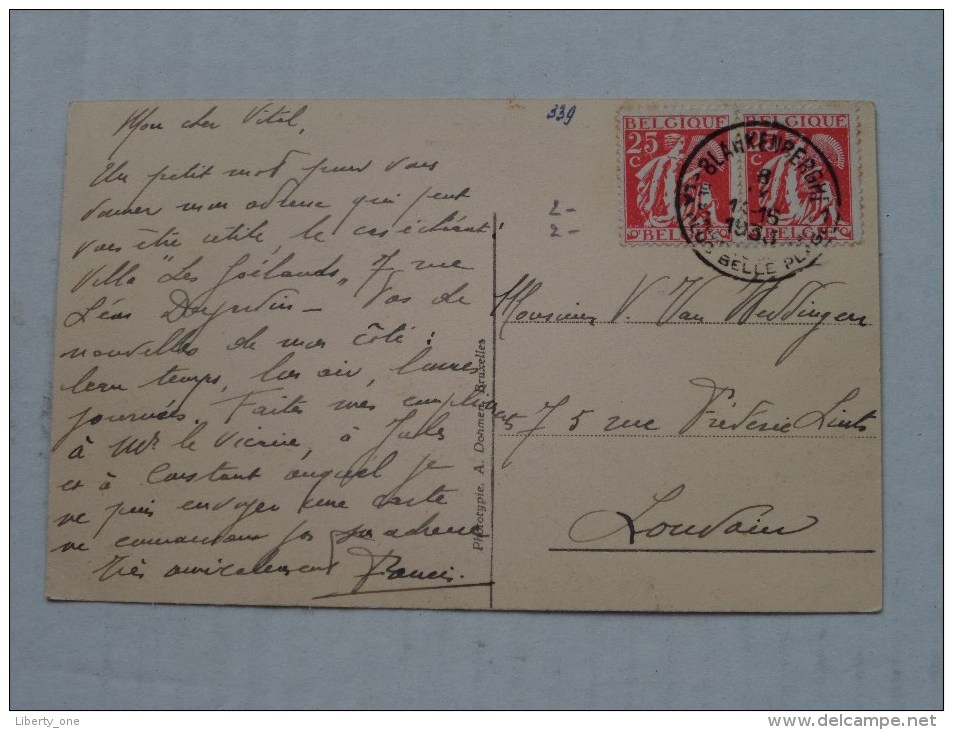 Mon cher Vital,
Un petit mot pour vous
donner mon adresse qui peut
vous être utile, le cas échéant:
Villa "Les Goélands" 7 rue
Léon
nouvelles de mon côté:
beau temps, bon air, bonnes
journées. Faites mes compliments
à Mr le Vicaire, à Jules
et à Constant auquel je
ne puis envoyer une carte
ne connaissant pas son adresse
Très amicalement Francis.
Phototypie. A. Dohmen, Bruxelles
339
2-
2-
BELGIQUE
25
C
BELGIE
BELGIQUE
C
BELGIE
BLANKENBERGHE
8
13-15
1933
BELLE PLAGE
Monsieur V. Van Weddingen
75 rue Frédéric Lints
Louvain
Liberty_one
www.delcampe.net